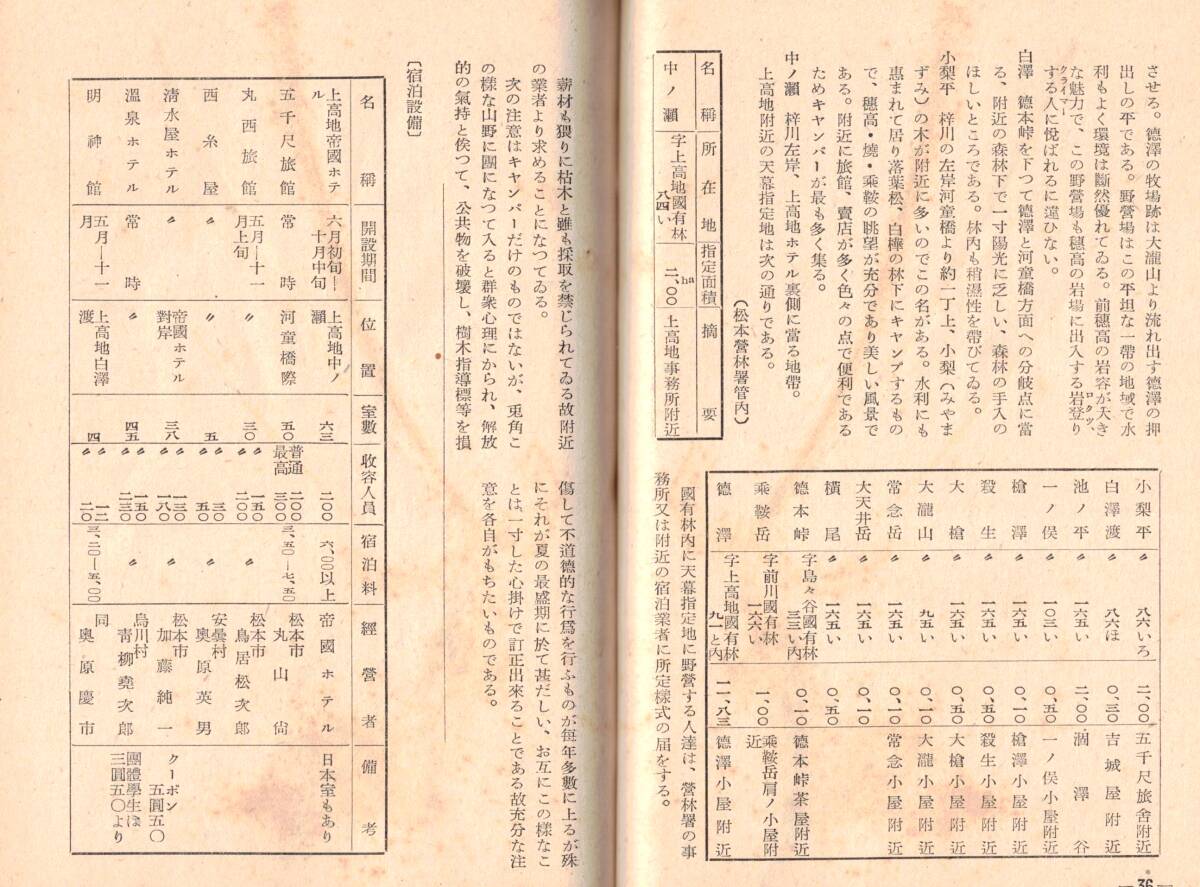 させる。德澤の牧場跡は大瀧山より流れ出す德澤の押
出しの平である。野營場はこの平坦な一帶の地域で水
利もよく環境は斷然優れてゐる。前穗高の岩容が大き
な魅力で、この野營場も穗高の岩場に出入する岩登り
ロクツ、クライマー
する人に悅ばれるに違ひない。
白澤 德本峠を下つて德澤と河童橋方面への分岐点に當
る、附近の森林下で一寸陽光に乏しい、森林の手入の
ほしいところである。林內も稍濕性を帶びてゐる。
小梨平 梓川の左岸河童橋より約一丁上、小梨（みやま
ずみ）の木が附近に多いのでこの名がある。水利にも
惠まれて居り落葉松、白樺の林下にキャンプするもの
で、穗高・燒・乘鞍の眺望が充分であり美しい風景で
ある。附近に旅館、賣店が多く色々の点で便利である
ためキャンパーが最も多く集る。
中ノ瀨 梓川左岸、上高地ホテル裏側に當る地帶。
上高地附近の天幕指定地は次の通りである。
（松本營林署管內）
名稱 所在地 指定面積 摘要
中ノ瀨 字上高地國有林八四い 二、〇〇ha 上高地事務所附近
小梨平 〃 八六いろ 二、〇〇 五千尺旅舍附近
白澤渡 〃 八六ほ 〇、三〇 吉城屋附近
池ノ平 〃 一六五い 二、〇〇 涸澤谷
一ノ俣 〃 一〇三い 〇、五〇 一ノ俣小屋附近
槍澤 〃 一六五い 〇、一〇 槍澤小屋附近
殺生 〃 一六五い 〇、五〇 殺生小屋附近
大槍 〃 一六五い 〇、五〇 大槍小屋附近
大瀧山 〃 九五い 〇、一〇 大瀧小屋附近
常念岳 〃 一六五い 〇、一〇 常念小屋附近
大天井岳 〃 一六五い 〇、一〇
橫尾 〃 一六五い 〇、五〇
德本峠 字島々谷國有林三三い內 〇、一〇 德本峠茶屋附近
乘鞍岳 字前川國有林一六六い 一、〇〇 乘鞍岳肩ノ小屋附近
德澤 字上高地國有林九一と內 一一、八三 德澤小屋附近
國有林內に天幕指定地に野營する人達は、營林署の事
務所又は附近の宿泊業者に所定樣式の屆をする。
—36—
薪材も猥りに枯木と雖も採取を禁じられてゐる故附近
の業者より求めることになつてゐる。
次の注意はキャンパーだけのものではないが、兎角こ
の樣な山野に團になつて入ると群衆心理にかられ、解放
的の氣持と俟つて、公共物を破壞し、樹木指導標等を損
傷して不道德的な行爲を行ふものが每年多數に上るが殊
にそれが夏の最盛期に於て甚だしい、お互にこの樣なこ
とは、一寸した心掛けで訂正出來ることである故充分な注
意を各自がもちたいものである。
〔宿泊設備〕
名稱 開設期間 位置 室數 收容人員 宿泊料 經營者 備考
上高地帝國ホテル 六月初旬—十月中旬 上高地中ノ瀨 六三 二〇〇 六、〇〇以上 帝國ホテル 日本室もあり
五千尺旅館 常時 河童橋際 五〇 普通二〇〇 最高三〇〇 三、五〇—七、五〇 松本市 丸山尙
丸西旅館 五月—十一月上旬 〃 三〇 〃一五〇 〃二〇〇 〃 松本市 鳥居松次郎
西糸屋 〃 〃 五 〃三〇 〃五〇 〃 安曇村 奧原英男
淸水屋ホテル 〃 帝國ホテル對岸 三八 〃一三〇 〃一八〇 〃 松本市 加藤純一 クーポン五圓五〇
溫泉ホテル 常時 〃 四五 〃一五〇 〃二三〇 〃 烏川村 靑柳堯次郎 團體學生は三圓五〇より
明神館 五月—十一月 上高地白澤渡 四 〃一二 〃二〇 三、二〇—五、〇〇 同 奧原慶市